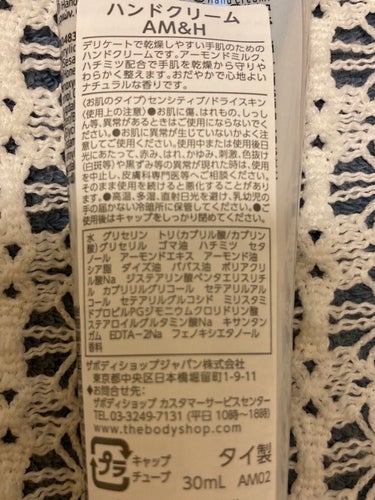 ハンドクリーム
AM&H
デリケートで乾燥しやすい手肌のための
ハンドクリームです。アーモンドミルク、
ハチミツ配合で手肌を乾燥から守りや
わらかく整えます。おだやかで心地よい
ナチュラルな香りです。
〈お肌のタイプ〉センシティブ/ドライスキン
〈使用上の注意〉●お肌に傷、はれもの、しっし
ん等、異常があるときはご使用にならないでく
ださい。●お肌に異常が生じていないかよく注
意してご使用ください。使用中または使用後日
光にあたって、赤み、はれ、かゆみ、刺激、色抜け
(白斑等)や黒ずみ等の異常が現れた時は、使用
を中止し、皮膚科専門医等へご相談ください。
そのまま使用を続けると悪化することがあり
ます。●高温、多湿、直射日光を避け、乳幼児の
手の届かない冷暗所に保管してください。●ご
使用後はキャップをしっかり閉めてください。
水 グリセリン トリ(カプリル酸/カプリン
酸)グリセリル ゴマ油 ハチミツ セタ
ノール アーモンドエキス アーモンド油
シア脂 ダイズ油 ババス油 ポリアクリ
ル酸Na ジステアリン酸ペンタエリスリチ
ル カプリリルグリコール セテアリルアル
コール セテアリルグルコシド ミリスタミ
ドプロピルPGジモニウムクロリドリン酸
ステアロイルグルタミン酸Na キサンタン
ガム EDTA-2Na フェノキシエタノール
香料
ザボディショップジャパン株式会社
東京都中央区日本橋堀留町1-9-11
●お問合せ先:
ザボディショップ カスタマーサービスセンター
TEL 03-3249-7131 (平日 10時〜18時)
thebodyshop.com
プラ
キャップ
チューブ
タイ製
30mL AM02